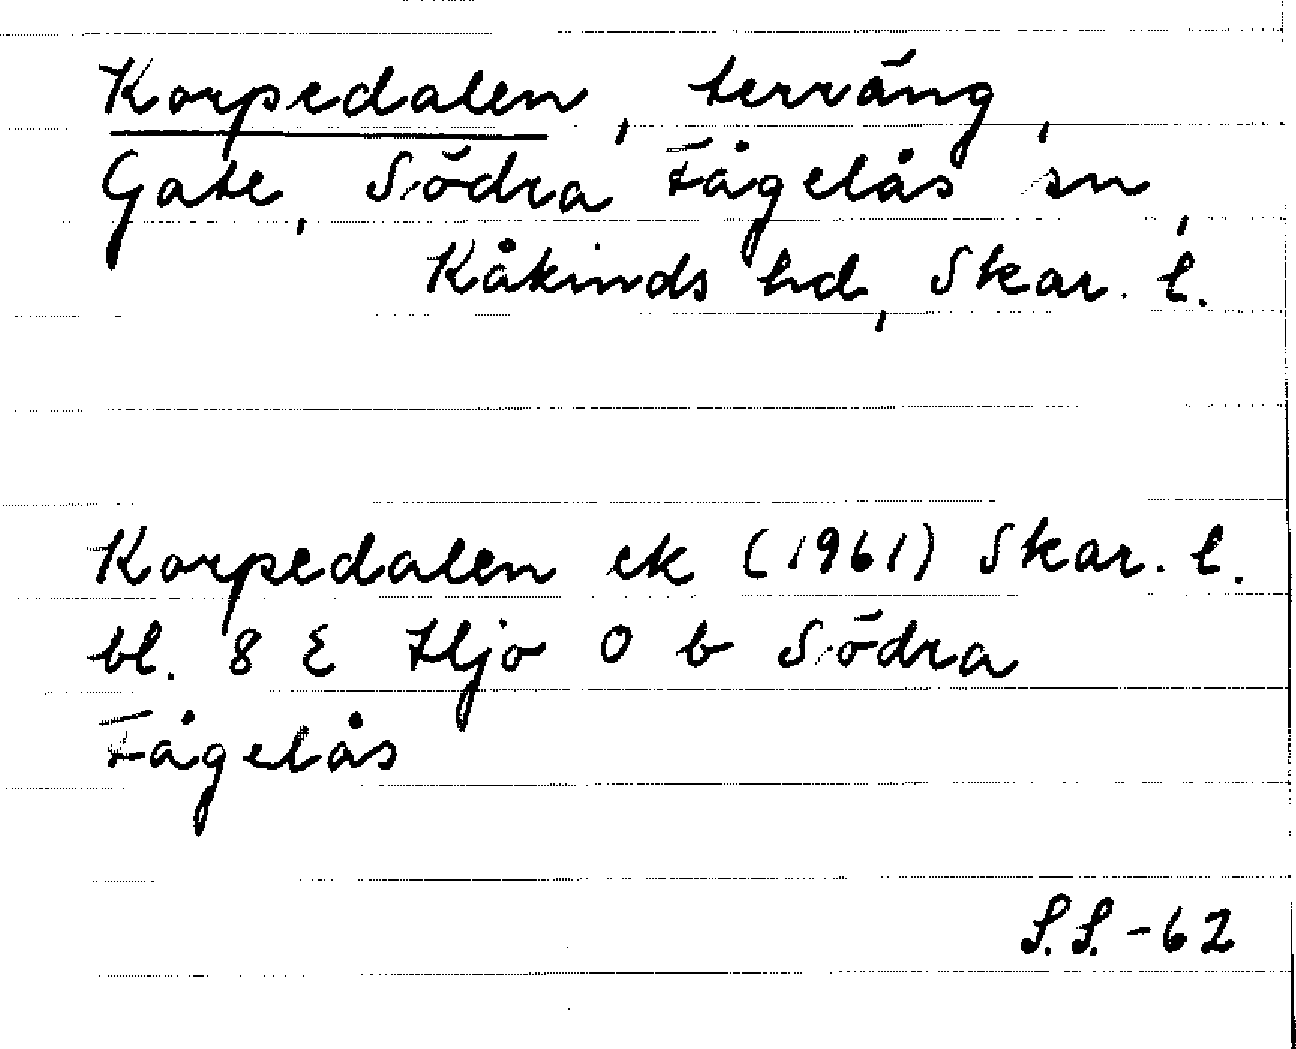 Korpedalen, terräng,
Gate, Södra Fågelås sn,
Kåkinds hd, Skar. l.
Korpedalen ek (1961) Skar. l.
bl. 8 E Hjo 0 b Södra
Fågelås
S.S. -62